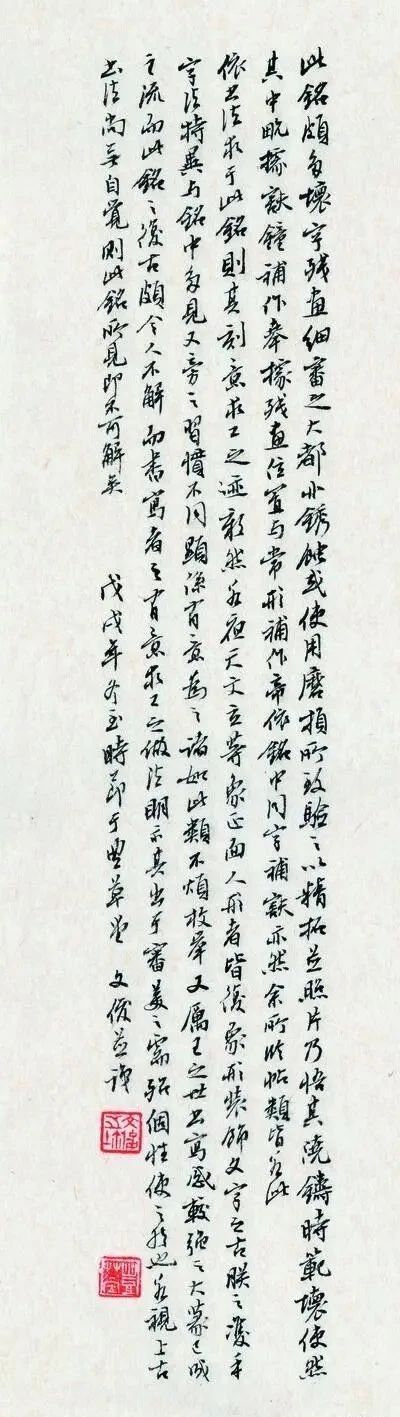 此銘頗多壞字殘畫細審之大都非銹蝕或使用磨損所致驗之以精拓並照片乃悟其澆鑄時範壞使然
其中畯據㝬鐘補作奉據殘畫位置与常形補作帝依銘中同字補缺亦然余所臨帖類皆若此
依書法求于此銘則其刻意求工之迹彰然若夜天文立等象正面人形者皆復象形裝飾文字之古朕之手
字法特異与銘中多見又旁之習慣不同顯係有意為之諸如此類不煩枚舉又厲王之世書寫感較強之大篆已成
主流而此銘之復古頗令人不解而書寫者之有意求工之做法明示其出于審美之需張個性使之然也若視上古
書法尚無自覺則此銘所見即不可解矣 戊戌年冬至時節于豐草堂 文俊並識